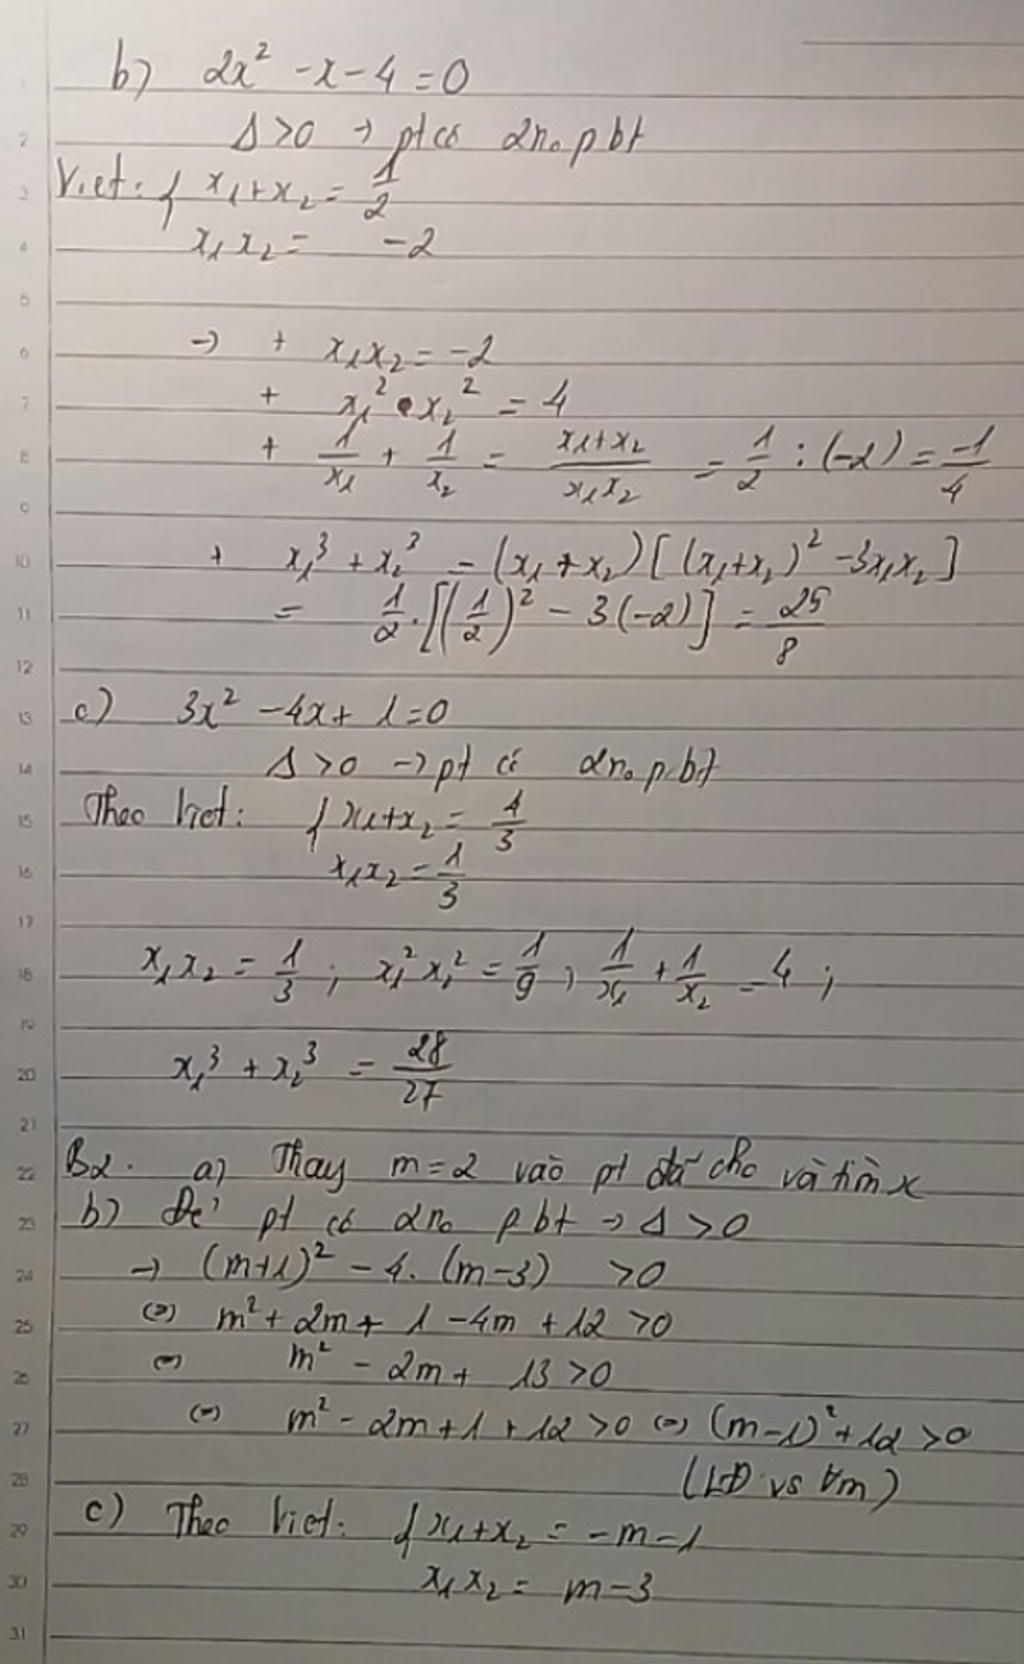 b) 2x² - x - 4 = 0
Δ > 0 → pt có 2 no pbt
Viet: { x₁ + x₂ = 1/2
x₁x₂ = -2
→ + x₁x₂ = -2
+ x₁² • x₂² = 4
+ 1/x₁ + 1/x₂ = (x₁ + x₂)/(x₁x₂) = 1/2 : (-2) = -1/4
+ x₁³ + x₂³ = (x₁ + x₂)[(x₁ + x₂)² - 3x₁x₂]
= 1/2 . [(1/2)² - 3(-2)] = 25/8
c) 3x² - 4x + 1 = 0
Δ > 0 → pt có 2 no p.bt
Theo Viet: { x₁ + x₂ = 4/3
x₁x₂ = 1/3
x₁x₂ = 1/3 ; x₁²x₂² = 1/9 ; 1/x₁ + 1/x₂ = 4 ;
x₁³ + x₂³ = 28/27
B2. a) Thay m = 2 vào pt đã cho và tìm x
b) Để pt có 2 no pbt → Δ > 0
→ (m+1)² - 4. (m-3) > 0
(=) m² + 2m + 1 - 4m + 12 > 0
(=) m² - 2m + 13 > 0
(=) m² - 2m + 1 + 12 > 0 (=) (m-1)² + 12 > 0
(LĐ vs ∀m)
c) Theo Viet: { x₁ + x₂ = -m-1
x₁x₂ = m-3
1
2
3
4
5
6
7
8
9
10
11
12
13
14
15
16
17
18
19
20
21
22
23
24
25
26
27
28
29
30
31